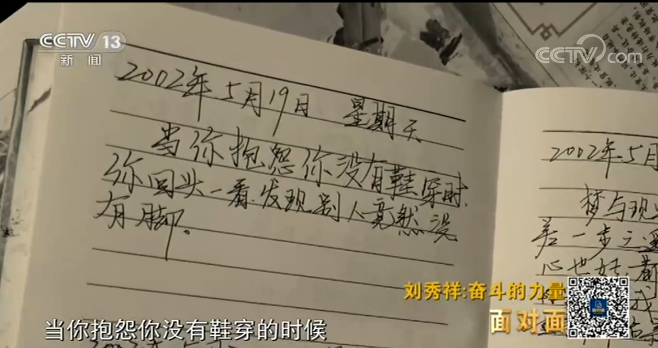 CCTV 13
新闻
CCTV.com
2002年5月19日 星期天
当你抱怨你没有鞋穿时,
你回头一看,发现别人竟然没
有脚。
2002年5月
梦与现
差一步之遥
刘秀祥:奋斗的力量
面对面
当你抱怨你没有鞋穿的时候